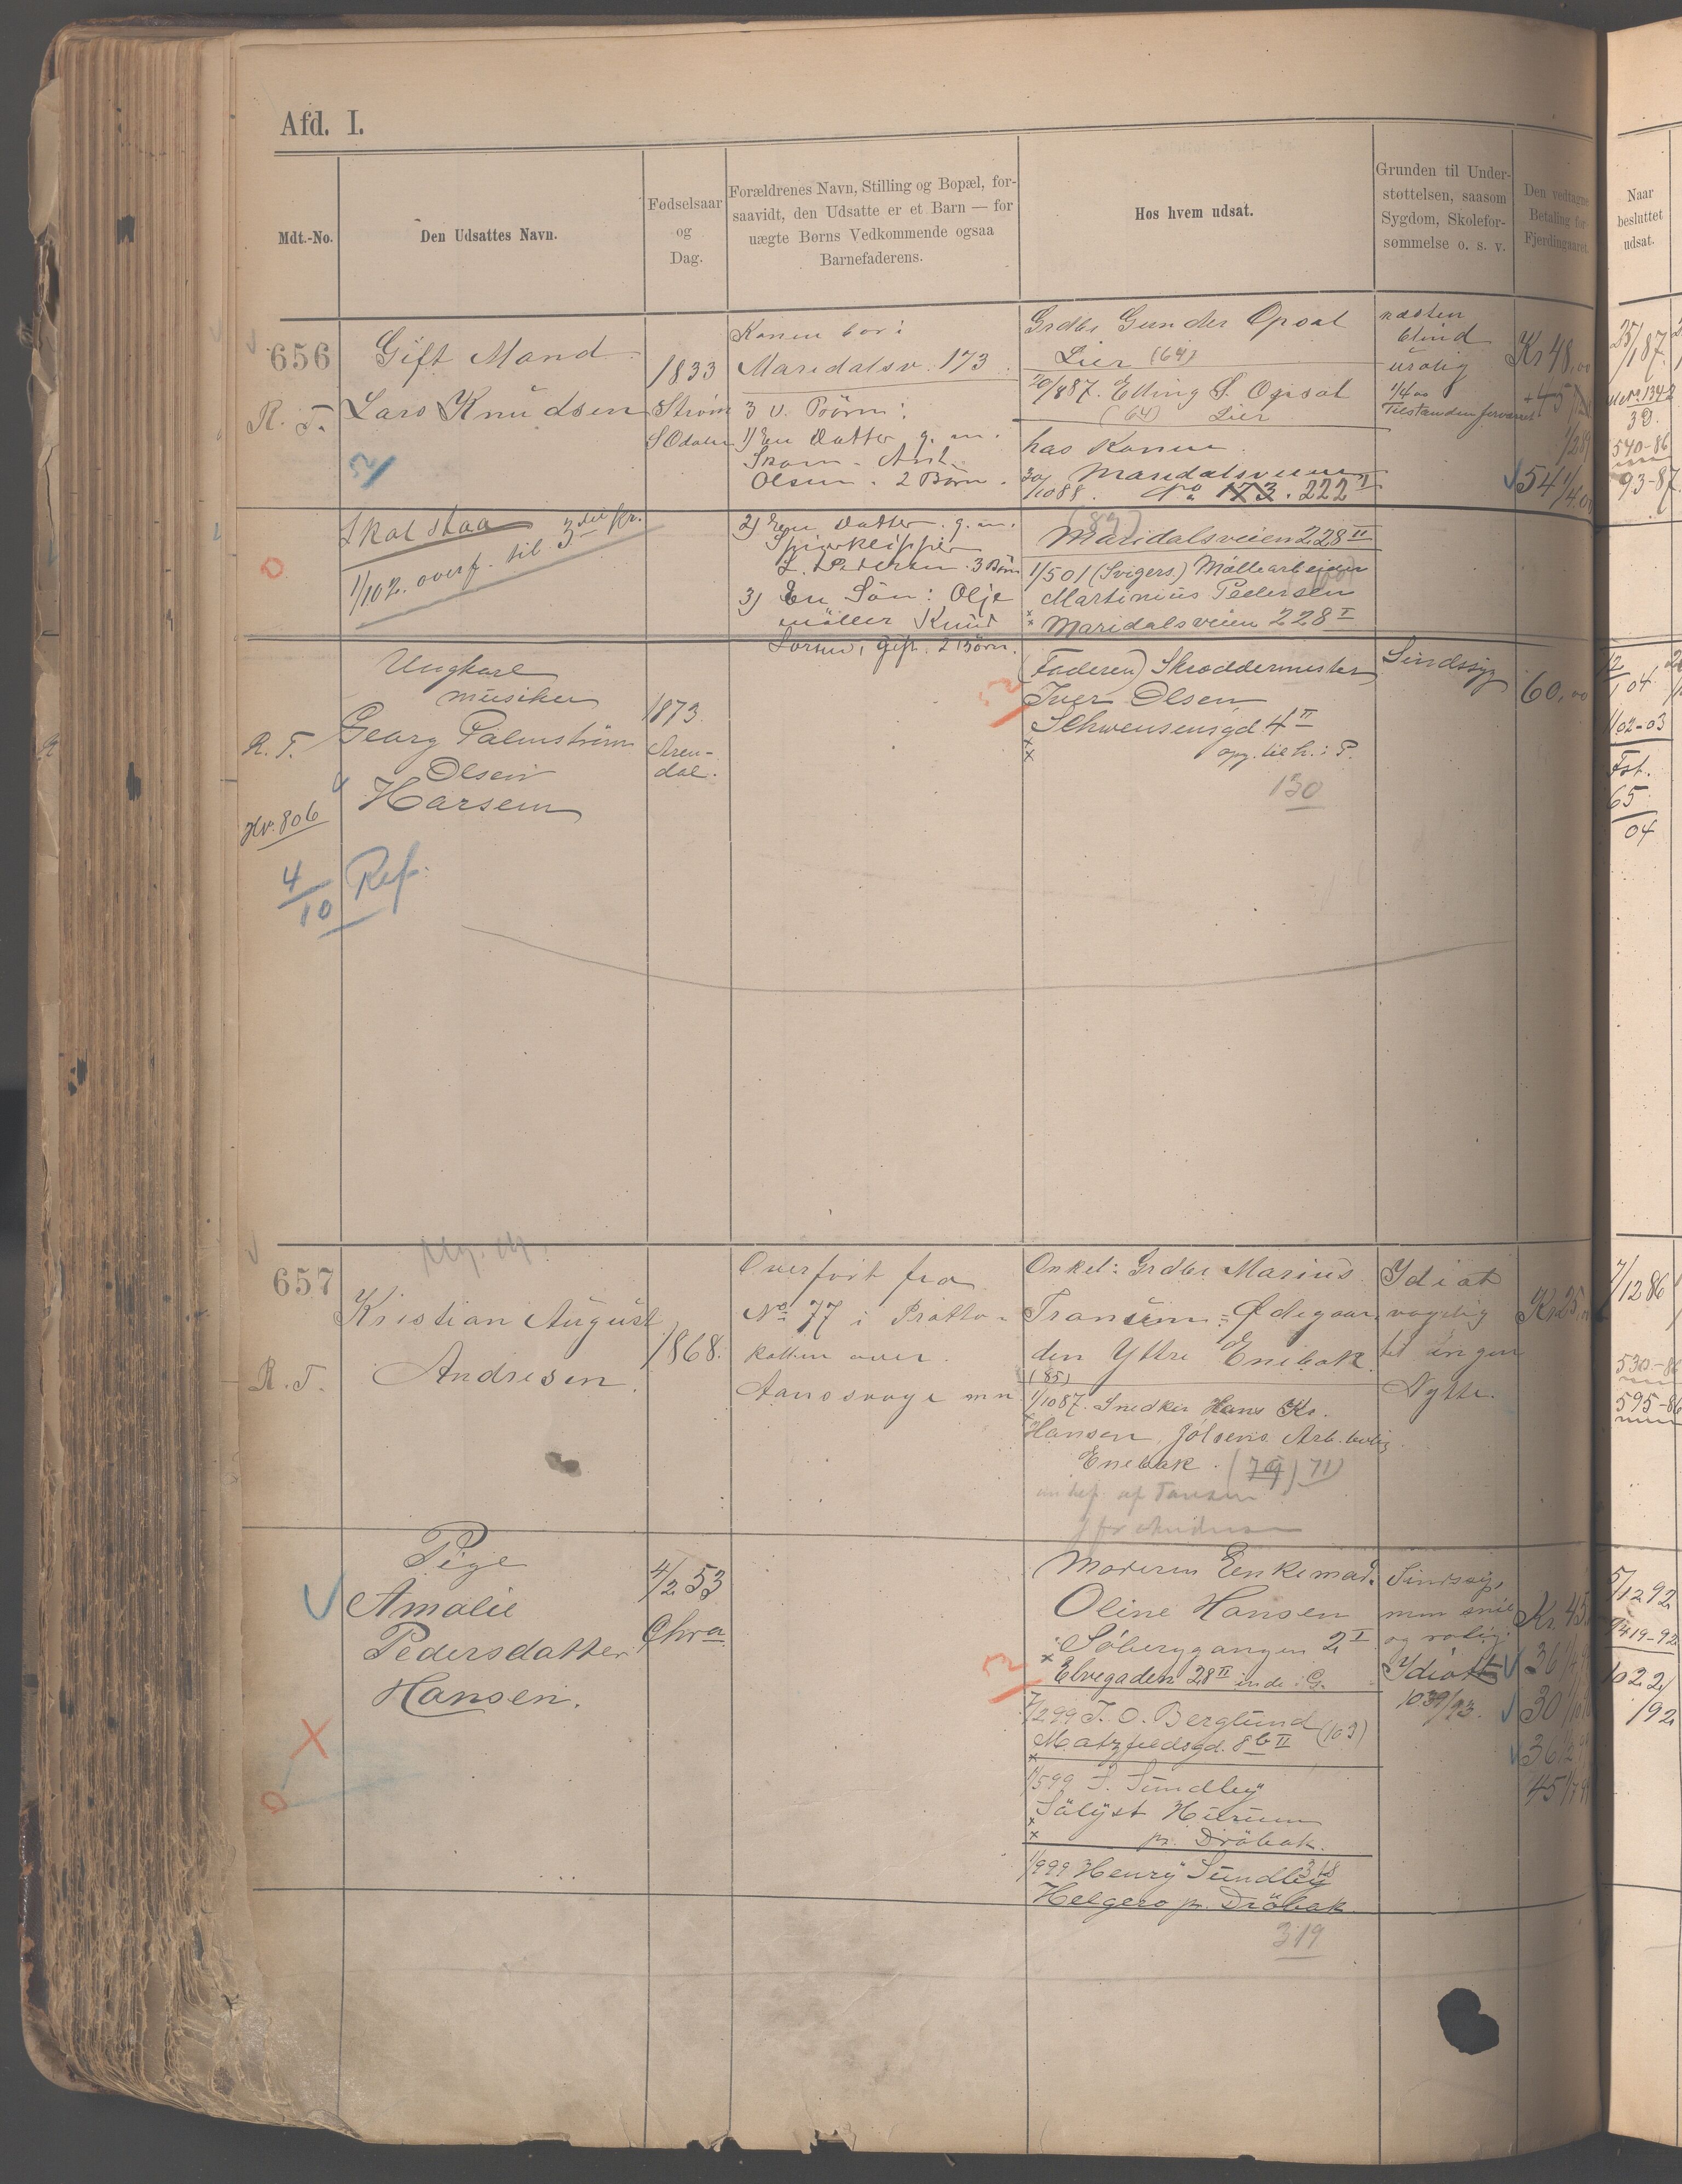 Afd. I.
Mdt.-No.
Den Udsattes Navn.
Fødselsaar
og
Dag.
Forældrenes Navn, Stilling og Bopæl, for-
saavidt, den Udsatte er et Barn — for
uægte Børns Vedkommende ogsaa
Barnefaderens.
Hos hvem udsat.
Grunden til Under-
støttelsen, saasom
Sygdom, Skolefor-
sømmelse o. s. v.
Den vedtagne
Betaling for
Fjerdingaaret.
Naar
besluttet
udsat.
656
R. T.
Gift Mand
Lars Knudsen
Skal staa
1/10 2. overf. til 3die Kr.
1833
Strøm
S Odalen
Konen bor:
Maridalsv. 173
3 v. Børn:
1) En Datter g. m.
Skom. Ant.
Olsen. 2 Børn.
2) En Datter g. m.
Spigerklipper
L. Petersen. 3 Børn
3) En Søn: Olje
møller Knud
Larsen, gift. 2 Børn.
Grdbr Gunder Opsal
Lier (64)
20/8 87. Elling S. Opsal
(64) Lier
hos Konen
30/10 88. Maridalsveien
No 173. 222 I
(89)
Maridalsveien 228 II
1/5 01 (Svigers.) Møllearbeider
Martinius Pedersen
Maridalsveien 228 I
næsten
blind
urolig
1/4 00
Tilstanden forværret
Kr 48,00
+ 45
54 1/4 00
25/1 87.
1342
540-86
93-87
R. T.
Hv. 806
4/10 Ref.
Ungkarl
musiker
Georg Palmstrøm
Olsen
Harsem
1873.
Aren-
dal.
(Faderen) Skræddermester
Iver Olsen
Schwensensgd 4 II
opg. til h. i P.
130
Sindssyg
60,00
12/1 04
1102-03
Fst.
65
04
657
R. T.
Kristian August
Andresen.
1868.
Overført fra
No 77 i Protto-
kollen over
Aandssvage m m
Onkel: Grdbr Marius
Tranum: Ødegaar
den Yttre Enebak.
(85)
1/10 87. Snedker Hans Kr.
Hansen, Jølsens Arb. bolig
Enebak. (79) 71)
Idiot
til ingen
Nytte.
Kr 25,00
7/12 86
530-86
595-86
Pige
Amalie
Pedersdatter
Hansen.
4/2 53
Chra
Moderen Enkemad.
Oline Hansen
Søberggangen 2 I
Elvegaden 28 II inde i G.
7/2 99 J. O. Berglund
Matzfeldsgd. 8b II (103)
1/5 99 S. Sundby
Sølyst Hurum
pr. Drøbak.
1/9 99 Henry Sundby
318
Helgerø pr. Drøbak
319
Sindssyg,
men snil
og rolig.
Idiott
1039/93.
Kr. 45
36 1/4
30
36
45
5/12 92
1419-92
1022/92